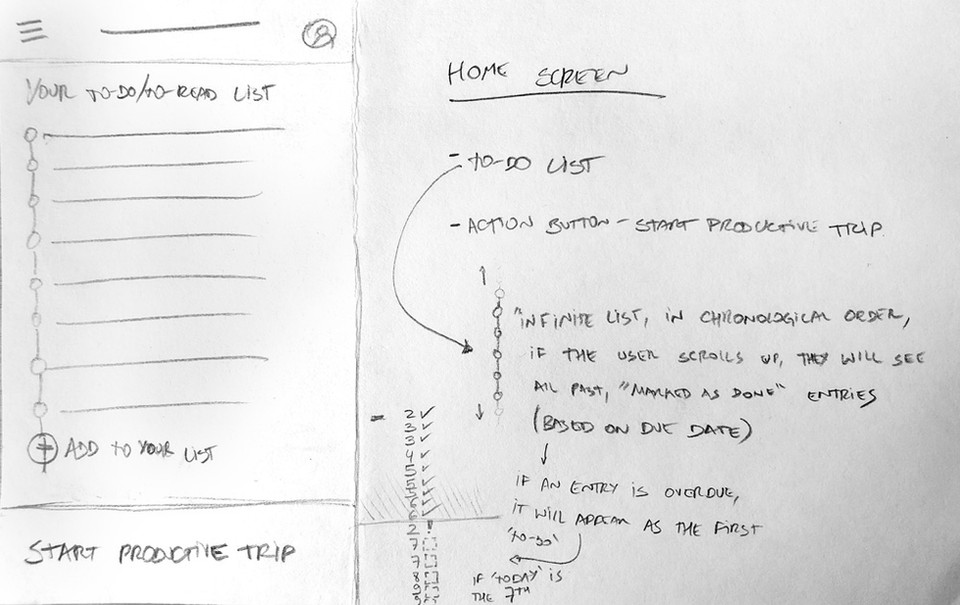 YOUR TO-DO/TO-READ LIST
ADD TO YOUR LIST
START PRODUCTIVE TRIP
HOME SCREEN
- TO-DO LIST
- ACTION BUTTON - START PRODUCTIVE TRIP
"INFINITE LIST, IN CHRONOLOGICAL ORDER,
IF THE USER SCROLLS UP, THEY WILL SEE
ALL PAST, "MARKED AS DONE" ENTRIES
(BASED ON DUE DATE)
IF AN ENTRY IS OVERDUE,
IT WILL APPEAR AS THE FIRST
'TO-DO'
IF 'TODAY' IS
THE 7TH
2 ✓
3 ✓
3 ✓
4 ✓
5 ✓
5 ✓
6 ✓
6 ✓
2 !
7
7
8
9
9